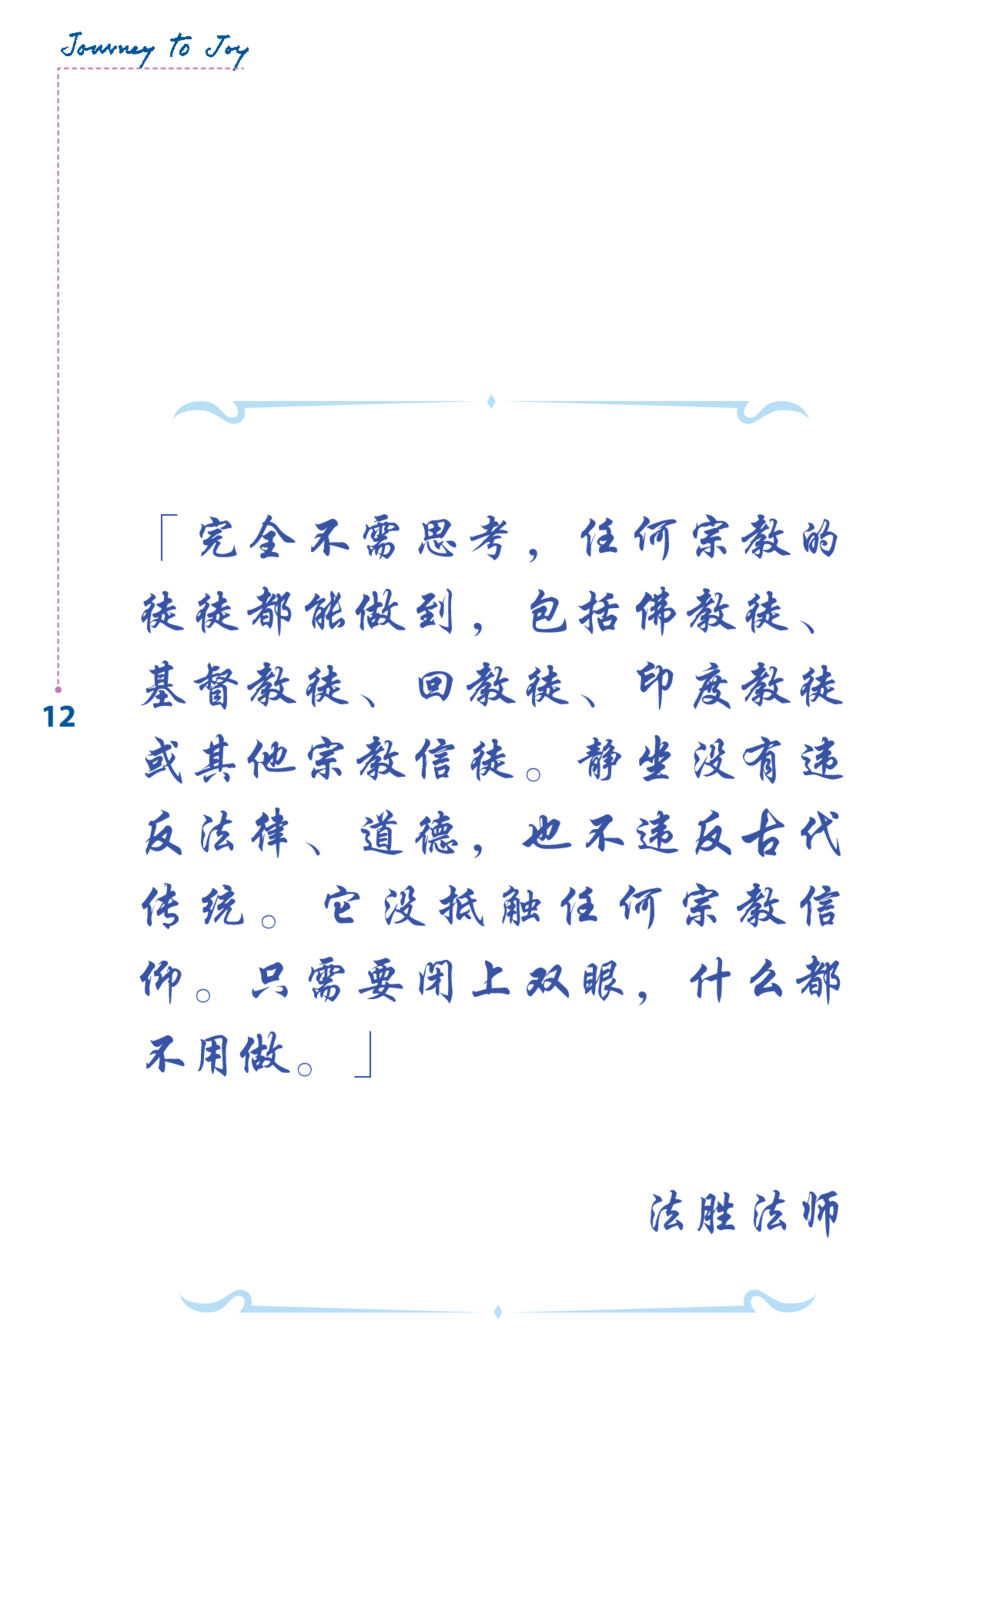 Journey to Joy
12
「完全不需思考，任何宗教的
徒徒都能做到，包括佛教徒、
基督教徒、回教徒、印度教徒
或其他宗教信徒。静坐没有违
反法律、道德，也不违反古代
传统。它没抵触任何宗教信
仰。只需要闭上双眼，什么都
不用做。」
法胜法师